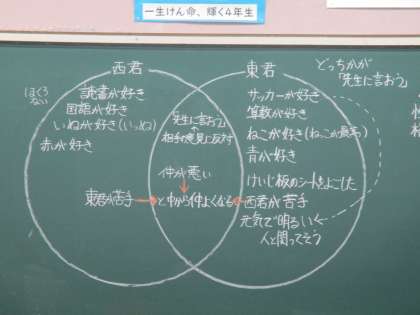 一生けん命、輝く4年生
西君
東君
どっちかが
「先生に言おう」
ほくろ
ない
読書が好き
国語が好き
いぬが好き(いっぬ)
赤が好き
東君が苦手
「先生に言おう」
相手の意見に反対
仲が悪い
と中から仲よくなる
サッカーが好き
算数が好き
ねこが好き
青が好き
けいじ板のシート
西君が苦手
元気で明るい
人と関ってそう